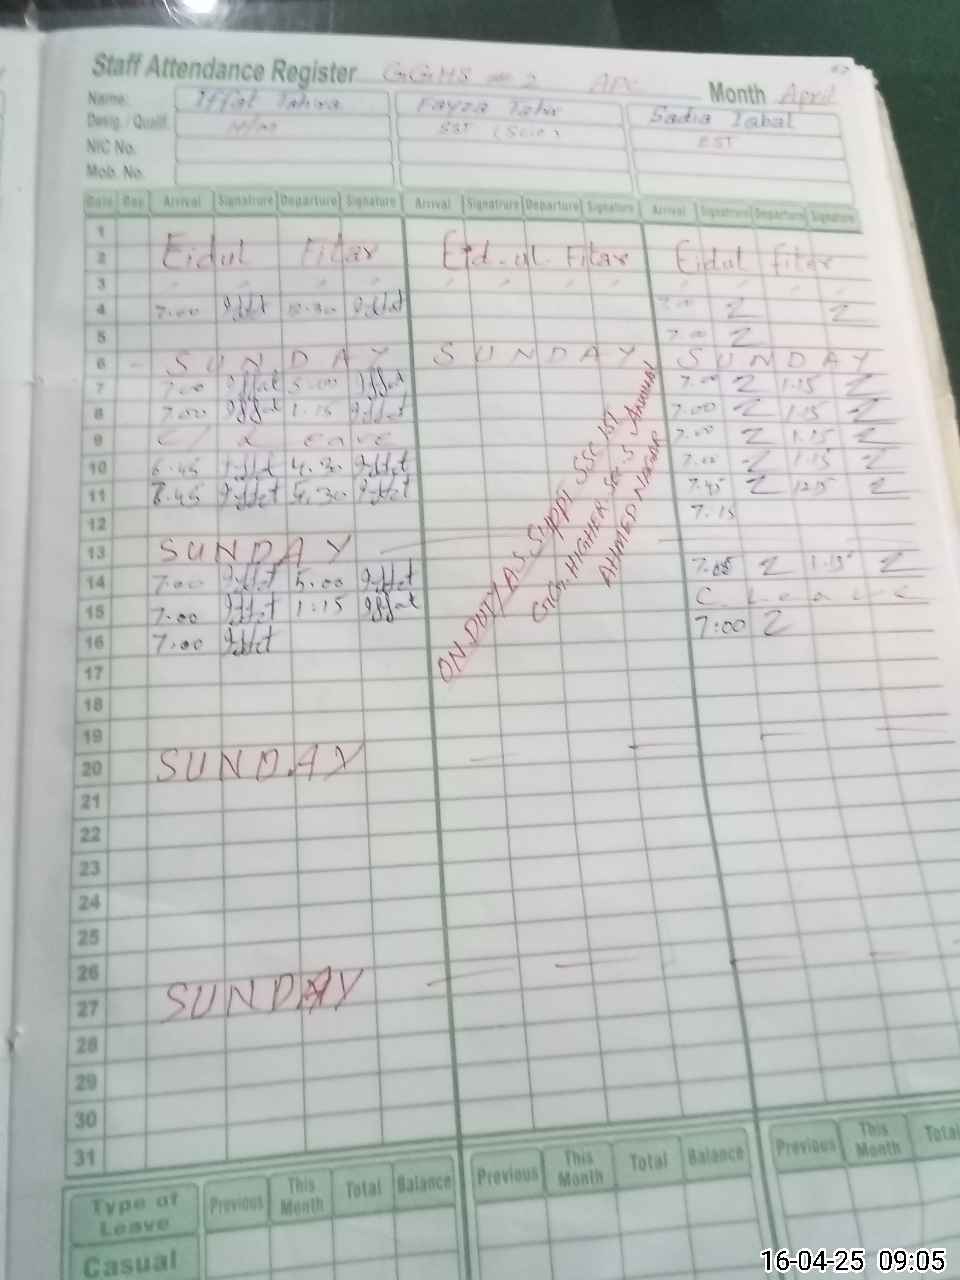 Staff Attendance Register GGHS 2 APE Month April
Name: Iffat Tahira Fayza Tahir Sadia Iqbal
Desig. / Qualif. H/M SST (Scie) EST
NIC No.
Mob. No.
Date Day Arrival Signature Departure Signature Arrival Signature Departure Signature Arrival Signature Departure Signature
1
2 Eidul Fitar Eid-ul-Fitar Eidul Fitar
3
4 7.00 Iffat Iffat
5 7.00
6 SUNDAY SUNDAY SUNDAY
7 7.00 Iffat 5.00 Iffat 7.00 1.15
8 7.00 Iffat 1.15 Iffat 7.00 1.15
9 C/Leave 7.00 1.15
10 6.45 Iffat 4.30 Iffat 7.00 1.15
11 Iffat Iffat 7.45 1215
12 7.15
13 SUNDAY
14 7.00 Iffat 5.00 Iffat 1.15
15 7.00 Iffat 1:15 Iffat C Leave
16 7.00 Iffat 7:00
ON DUTY AS Suppt SSC 1st Annual
GG.HIGHER Sec. S
AHMED NAGAR
17
18
19
20 SUNDAY
21
22
23
24
25
26
27 SUNDAY
28
29
30
31
Type of Leave Previous This Month Total Balance Previous This Month Total Balance Previous This Month Total
Casual
16-04-25 09:05